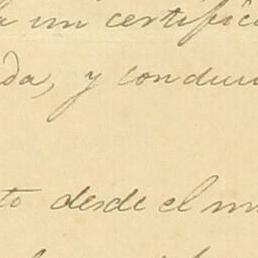 un certific
da, y condu
to desde el m